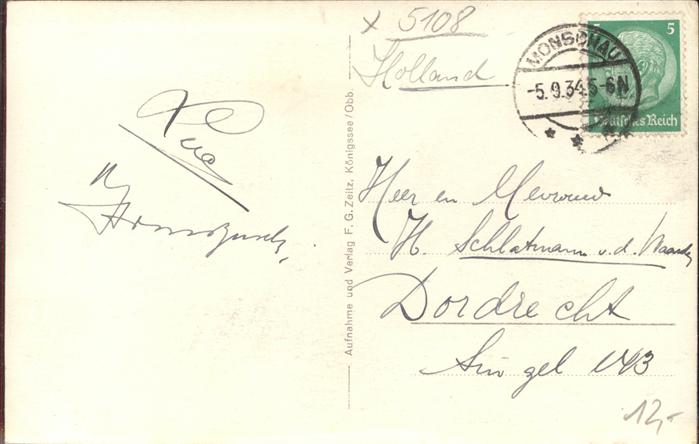 x 5108
Holland
5
Deutsches Reich
MONSCHAU
-5.9.34.5-6N
Aufnahme und Verlag F. G. Zeitz, Königssee/Obb.
Heer en Mevrouw
H. Schlatmann v.d.
Dordrecht
Singel 143
12,-